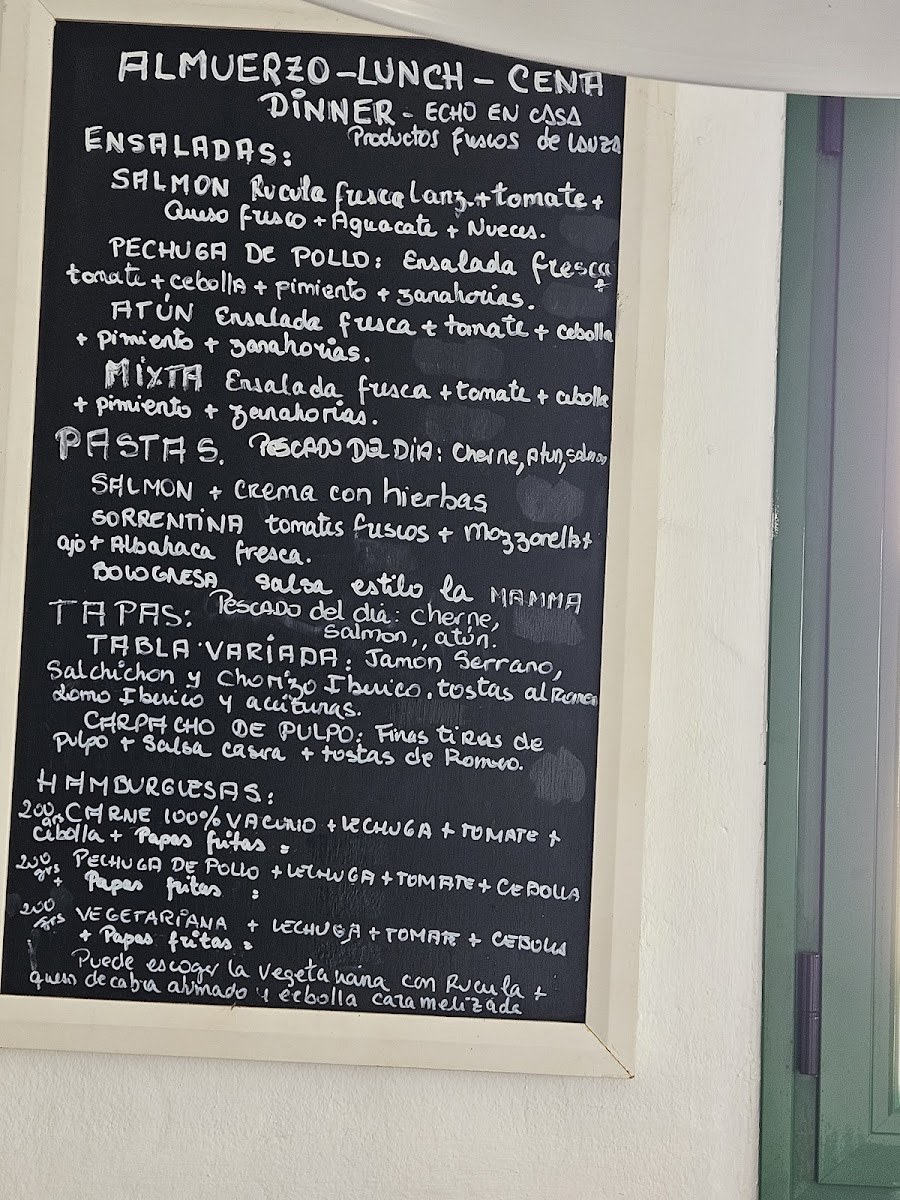 ALMUERZO-LUNCH- CENA
DINNER - ECHO EN CASA
Productos fuscos de LAUZA
ENSALADAS:
SALMON Rucula fresca Lanz.+tomate+
Queso fresco + Aguacate + Nueces.
PECHUGA DE POLLO: Ensalada fresca
tomate + cebollA + pimiento + zanahorias. +
ATÚN Ensalada fresca + tomate + cebolla
+ pimiento + zanahorias.
MIXTA Ensalada fresca + tomate + cebolla
+ pimiento + zanahorias.
PASTAS. PESCADO DEL DIA: Cherne, Atun, salmon
SALMON + Crema con hierbas
SORRENTINA tomates fuscos + Mozzarella+
ajo + Albahaca fresca.
BOLOGNESA salsa estilo la MAMMA
TAPAS: PESCADO del dia: cherne,
salmon,, atún.
TABLA VARIADA: Jamón Serrano,
Salchichon y Chorizo Iberico, tostas al Romero
Lomo Iberico y aceitunas.
CARPACHO DE PULPO: Finas tiras de
pulpo + Salsa casera + tostas de Romeo.
HAMBURGUESAS:
200 grs CARNE 100% VACUNO + LECHUGA + TOMATE +
cebolla + Papas fritas :
200 grs PECHUGA DE POLLO + LECHUGA + TOMATE + CEBOLLA
+ Papas fritas :
200 grs VEGETARIANA + LECHUGA + TOMATE + CEBOLLA
+ Papas fritas :
Puede escoger la vegetariana con Rucula +
queso de cabra ahmado y cebolla caramelizada